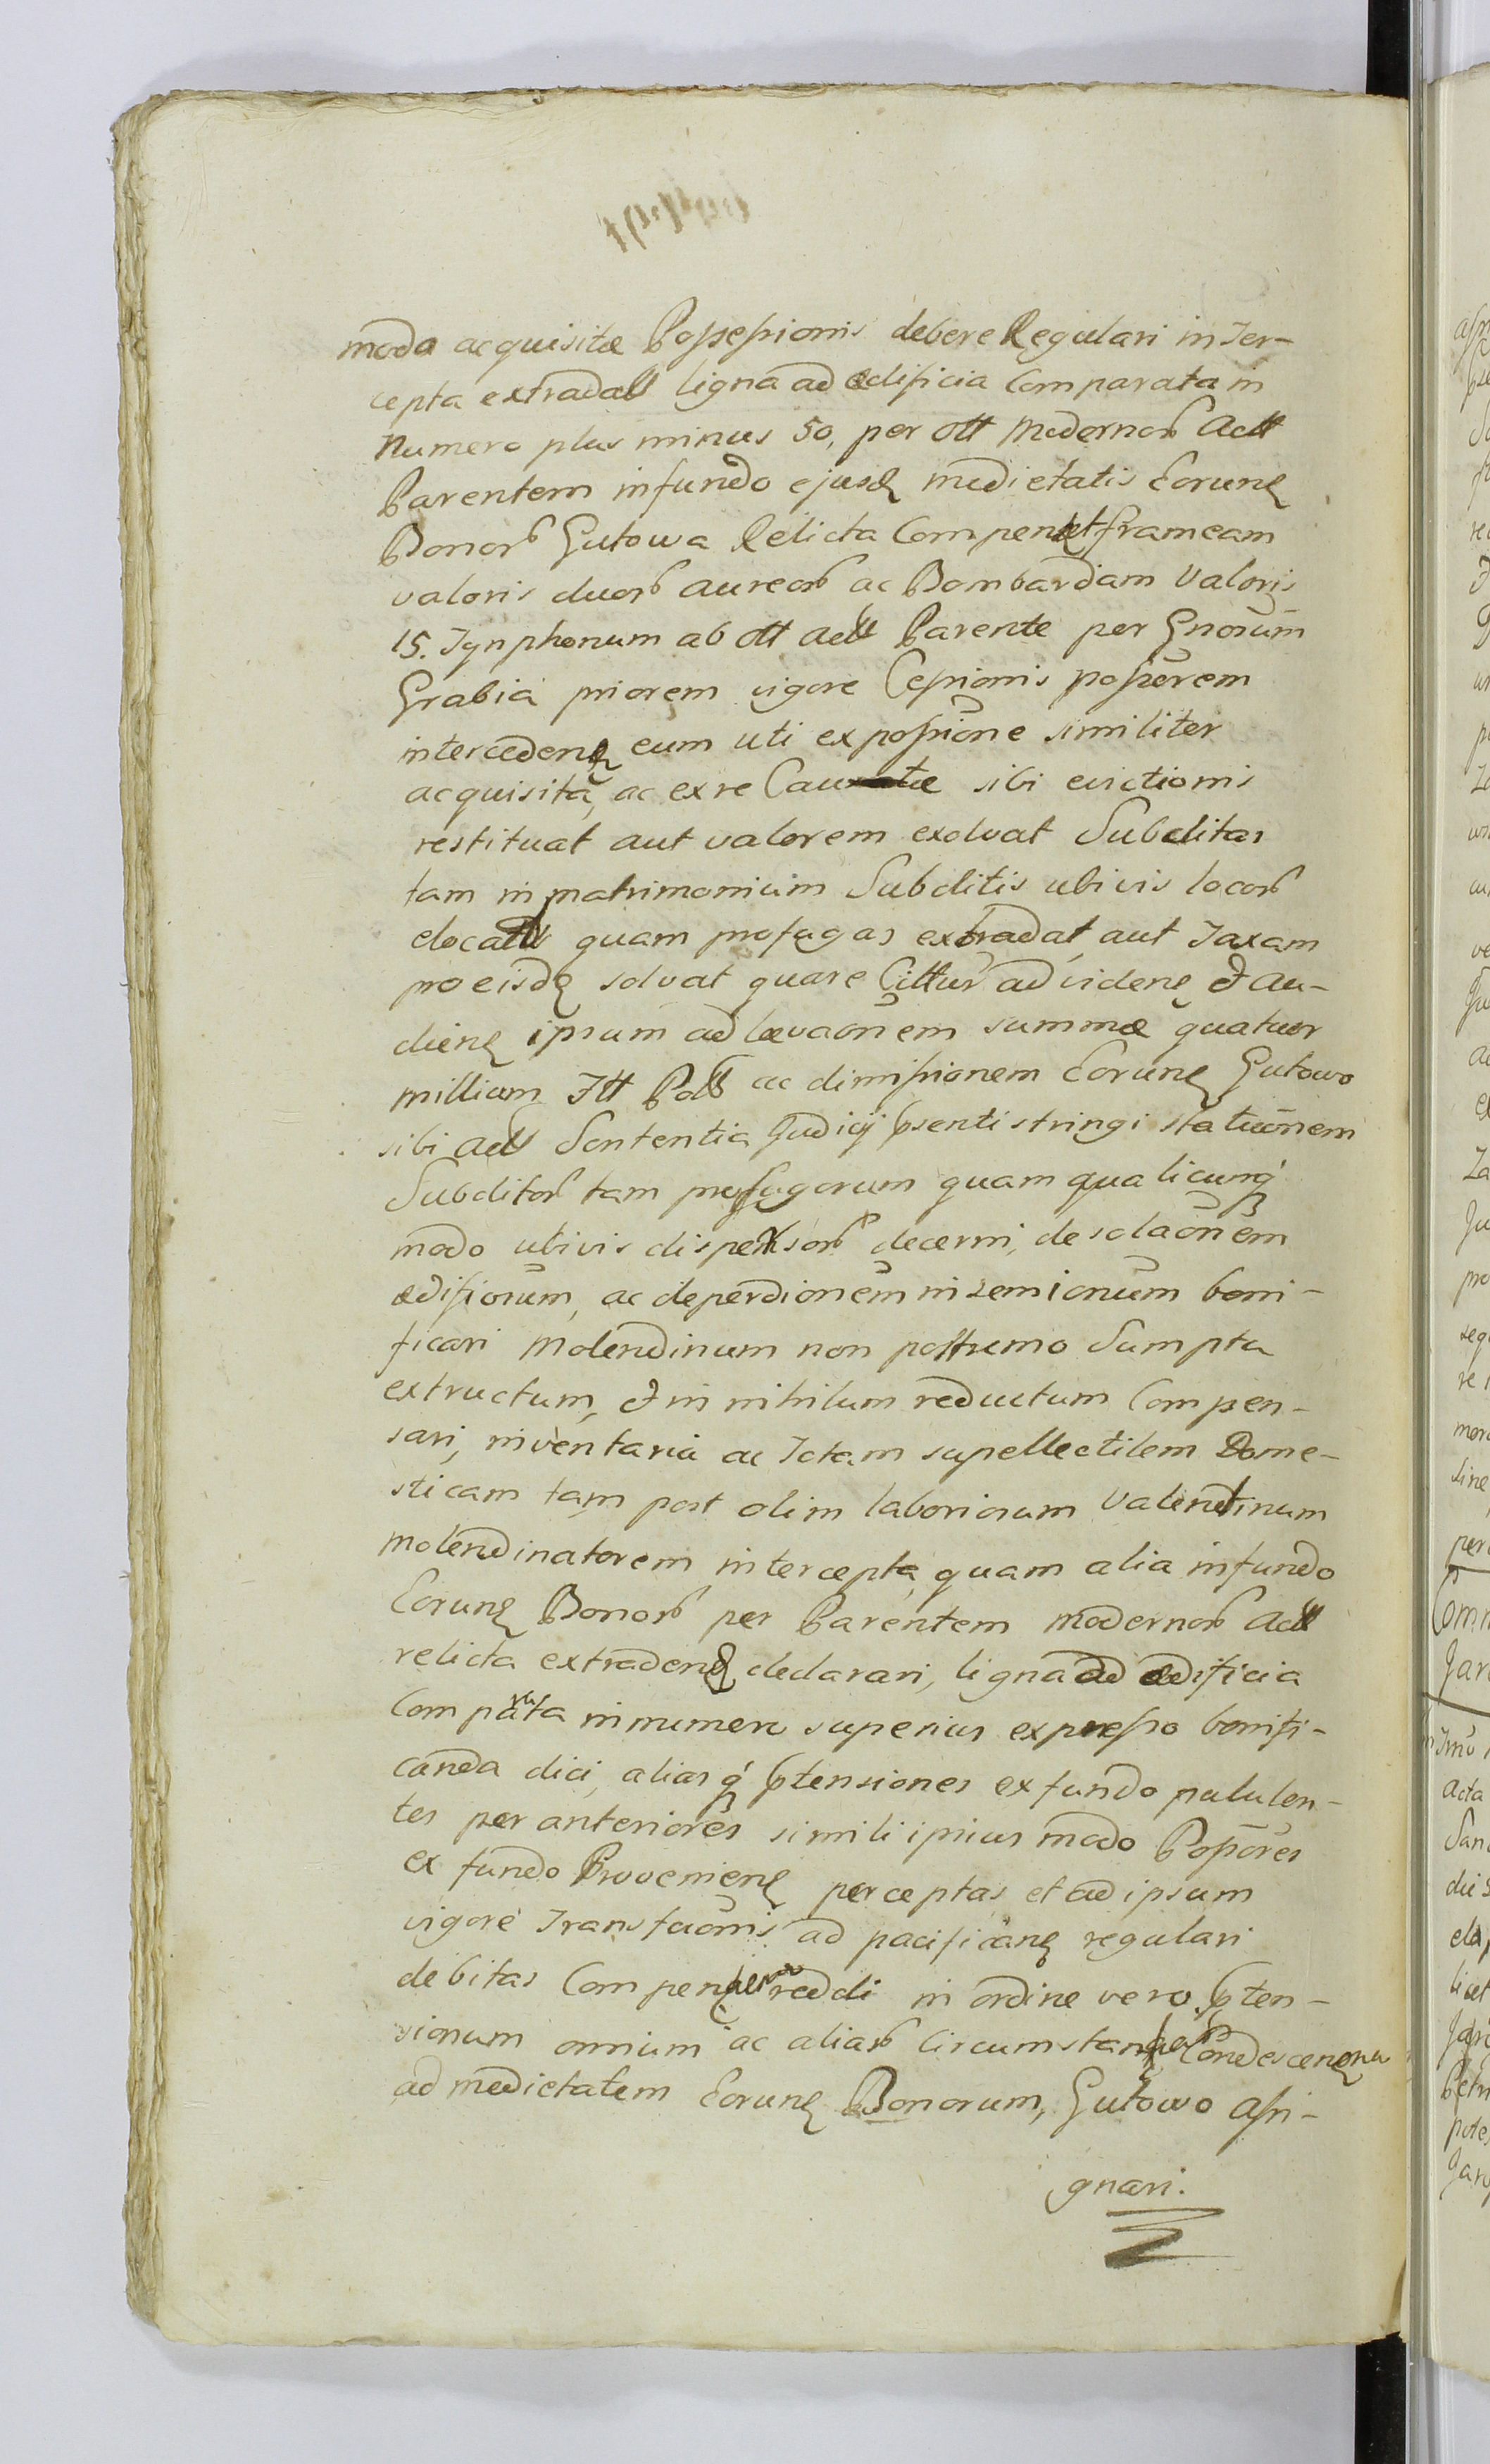 modo acquisitæ Possessionis debere Regulari in Ter-
cepta extradatt ligna ad ædificia Comparata in
Numero plus minus 50, per ott Modernor Actt
Parentem in fundo ejusd medietatis Eorund
Bonor Gutowa Relicta Compenset frameam
valoris duor aureor ac Bombardam Valoris
15. Tynphonum ab ott Actt Parente per Gnosum
Grabia priorem vigore Cessionis possorem
intercedend eum uti ex possione similiter
acquisita, ac ex re sibi evictionis
restituat aut valorem exolvat Subditas
tam in matrimonium Subditis ubivis locor
elocatt quam profugas extradat, aut Taxam
pro eisd solvat quare Cittur ad vidend & au-
diend ipsum ad levaonem summæ quatuor
millium Ftt Poll ac dimissionem Eorund Gutowo
sibi actt Sententia Judicij psenti stringi statuonem
Subditor tam profugorum quam qualicunq
modo ubivis dispersor decerni, desolaonem
ædificiorum, ac deperdionem in semionum boni-
ficari Molendinum non postremo Sumptu
extructum, & in nihilum reductum Compen-
sari, inventaria ac Totam supellectilem Dome-
sticam tam post olim laboriosum Valentinum
Molendinatorem intercepta quam alia in fundo
Eorund Bonor per Parentem Modernor Actt
relicta extradend declarari, ligna ad ædificia
Comparata in numero superius expresso bonifi-
canda dici, aliasq ptensiones ex fundo pululen-
tes per anteriores simili ipsius modo Possores
ex fundo Proveniend perceptas et ad ipsum
vigore Transfuonis ad pacificand regulari
debitas reddi in ordine vero pten-
sionum omnium ac aliar Circumstantiar
ad medietatem Eorund Bonorum, Gutowo assi-
gnari.